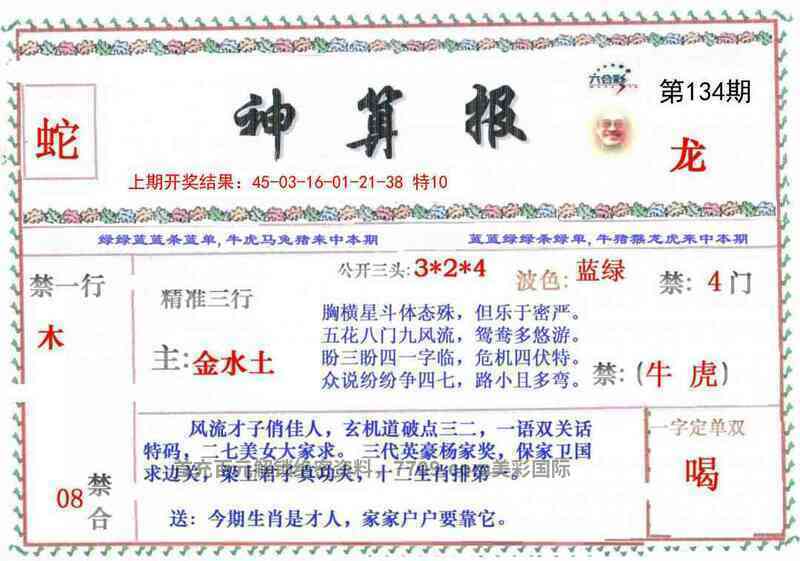 六合彩
第134期
蛇
神算报
龙
上期开奖结果：45-03-16-01-21-38 特10
绿绿蓝蓝条蓝单,牛虎马兔猪来中本期
蓝蓝绿绿条绿单,牛猪猴龙虎来中本期
禁一行
木
精准三行
主:金水土
公开三头:3*2*4
波色:蓝绿
禁:4门
胸横星斗体态殊，但乐于密严。
五花八门九风流，鸳鸯多悠游。
盼三盼四一字临，危机四伏特。
众说纷纷争四七，路小且多弯。
禁:(牛 虎)
08禁合
风流才子俏佳人，玄机道破点三二，一语双关话
特码，二七美女大家求。 三代英豪杨家奖，保家卫国
求边关，梁上君子真功夫，十二生肖排第一。
送：今期生肖是才人，家家户户要靠它。
一字定单双
喝